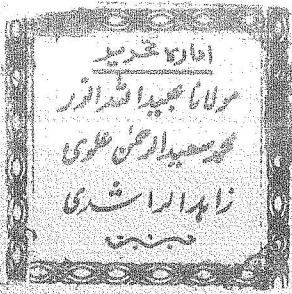 ادارۂ تحریر
مولانا عبید اللہ انور
محمد سعید الرحمٰن علوی
زاہد الراشدی